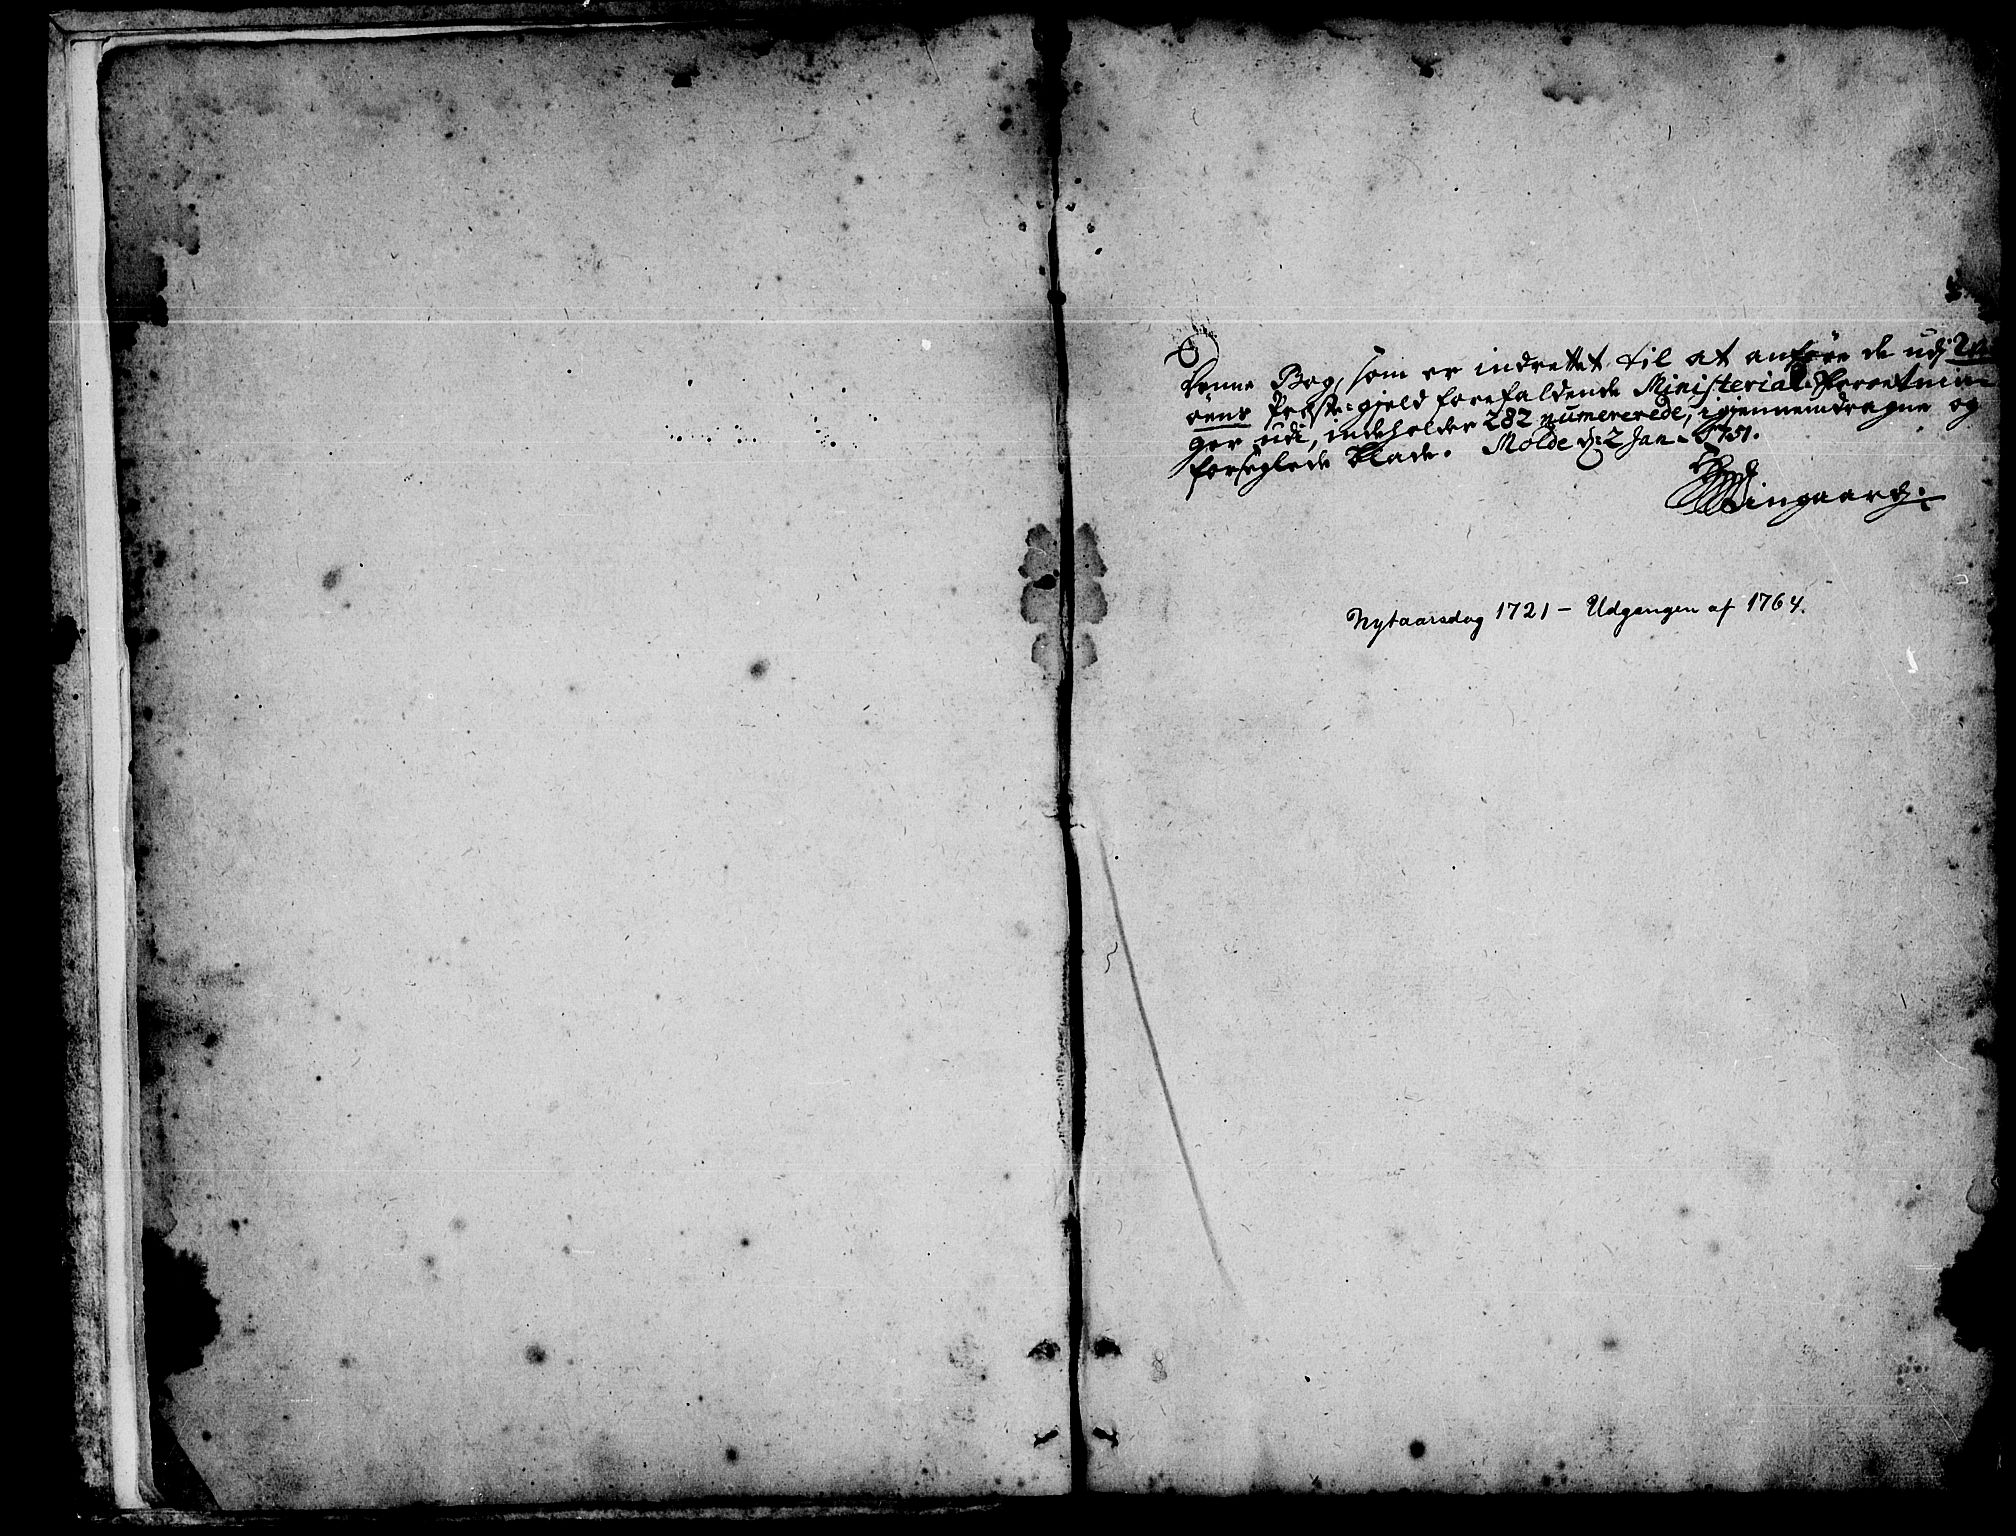 Denne Bog, som er indrettet til at anføre de udj
øens Præste-gjeld forefaldende Ministerial-Forretnin-
ger udi, indeholder 282 numererede, igjennemdragne og
forseglede Blade. Molde d: 2 Jan. 1751.
Nytaarsdag 1721 – Udgangen af 1764.